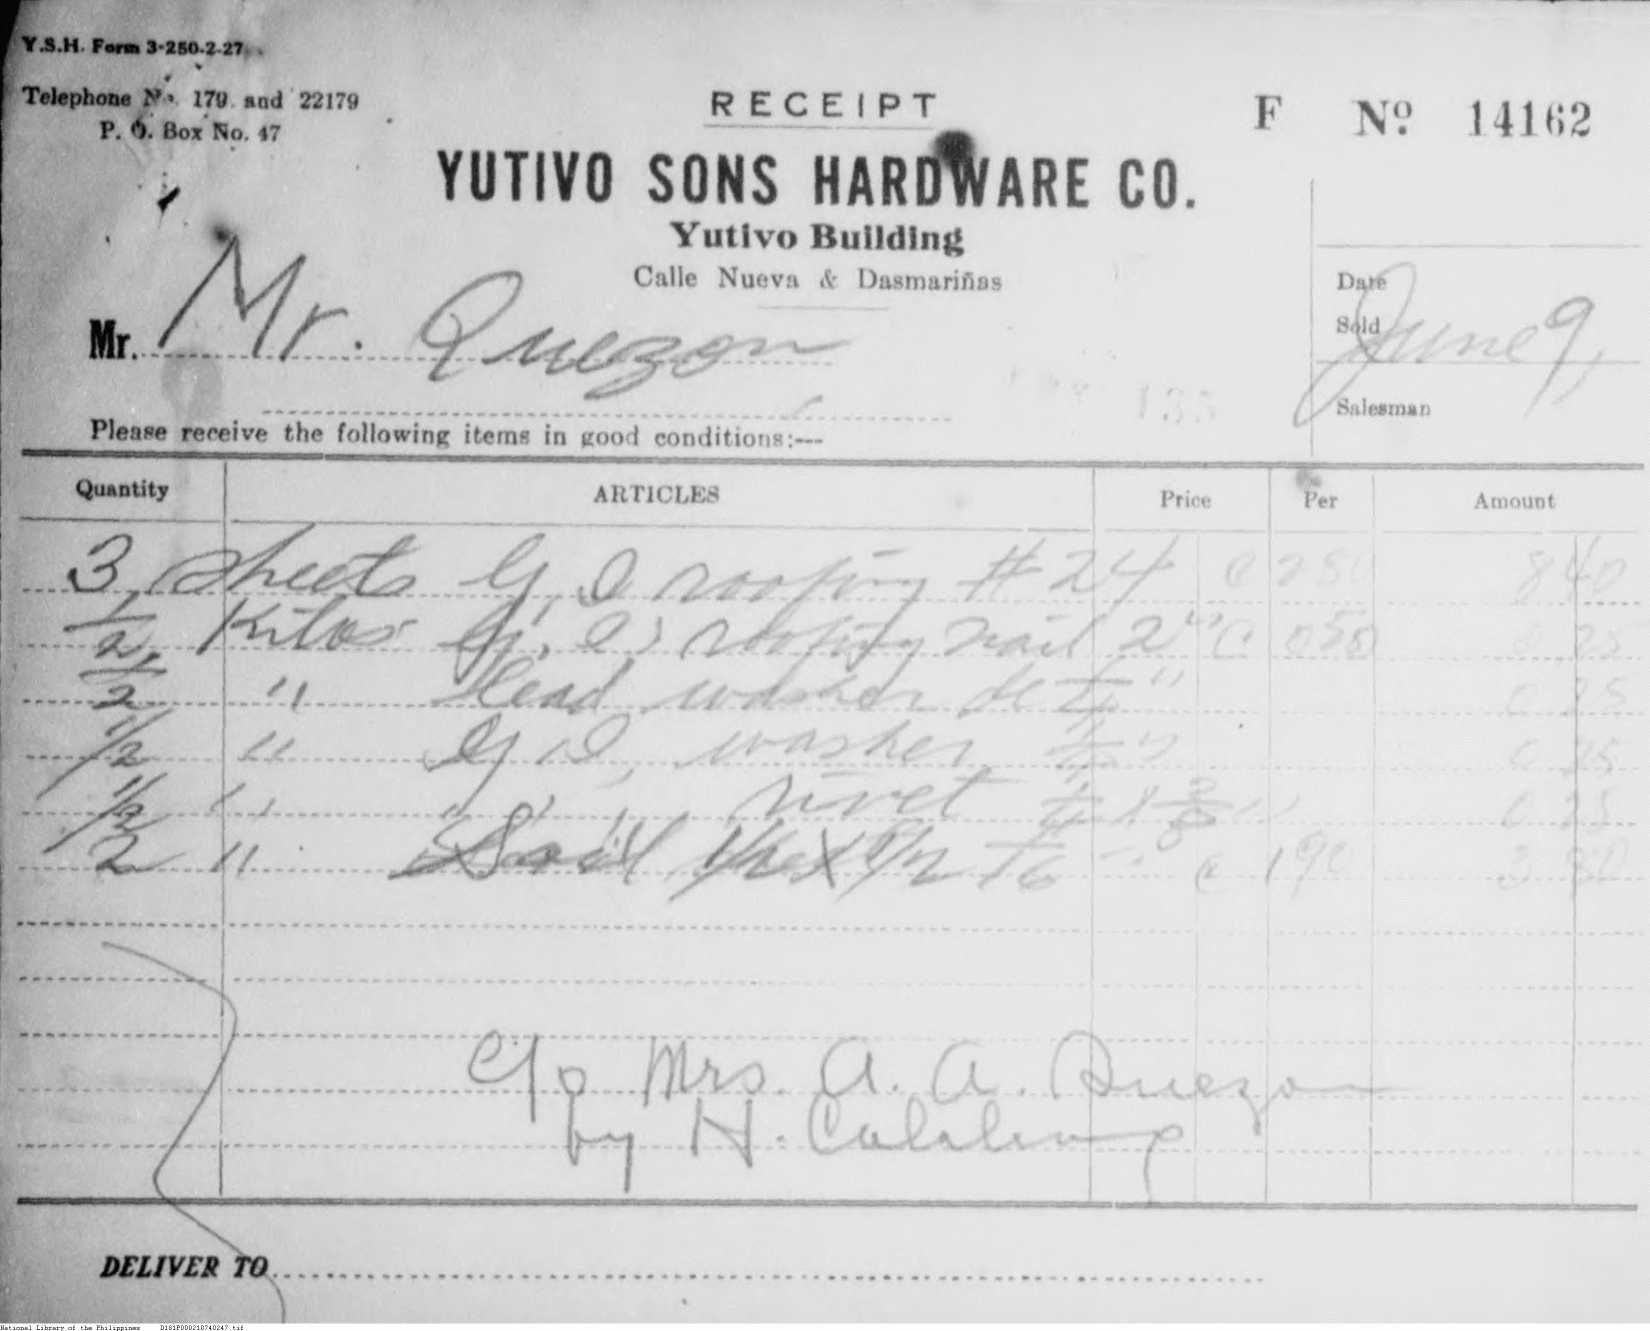 Y.S.H. Form 3-250-2-27
Telephone No. 179 and 22179
P. O. Box No. 47
RECEIPT
F No 14162
YUTIVO SONS HARDWARE CO.
Yutivo Building
Calle Nueva & Dasmariñas
Date
Sold June 9,
Mr. Mr. Quezon
Salesman
Please receive the following items in good conditions:---
Quantity ARTICLES Price Per Amount
3 sheets G. I. roofing #24 @ 280 8 40
1/2 Kilos G. I. roofing nail 2" @ 050 0 25
1/2 " Lead washer de 1/4" 0 25
1/2 " G. I. washer 1/4" 0 25
1/2 " " " rivet 1/4 x 3/8" 0 25
2 " 1/16 @ 190 3 80
c/o Mrs. A. A. Quezon
by H.
DELIVER TO
National Library of the Philippines D181P000210740247.tif